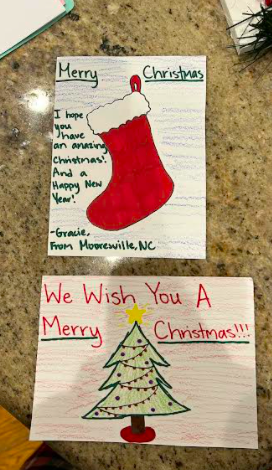 Merry Christmas
I hope
you
have
an amazing
Christmas!
And a
Happy New
Year!
-Gracie,
From Mooresville, NC
We Wish You A
Merry Christmas!!!